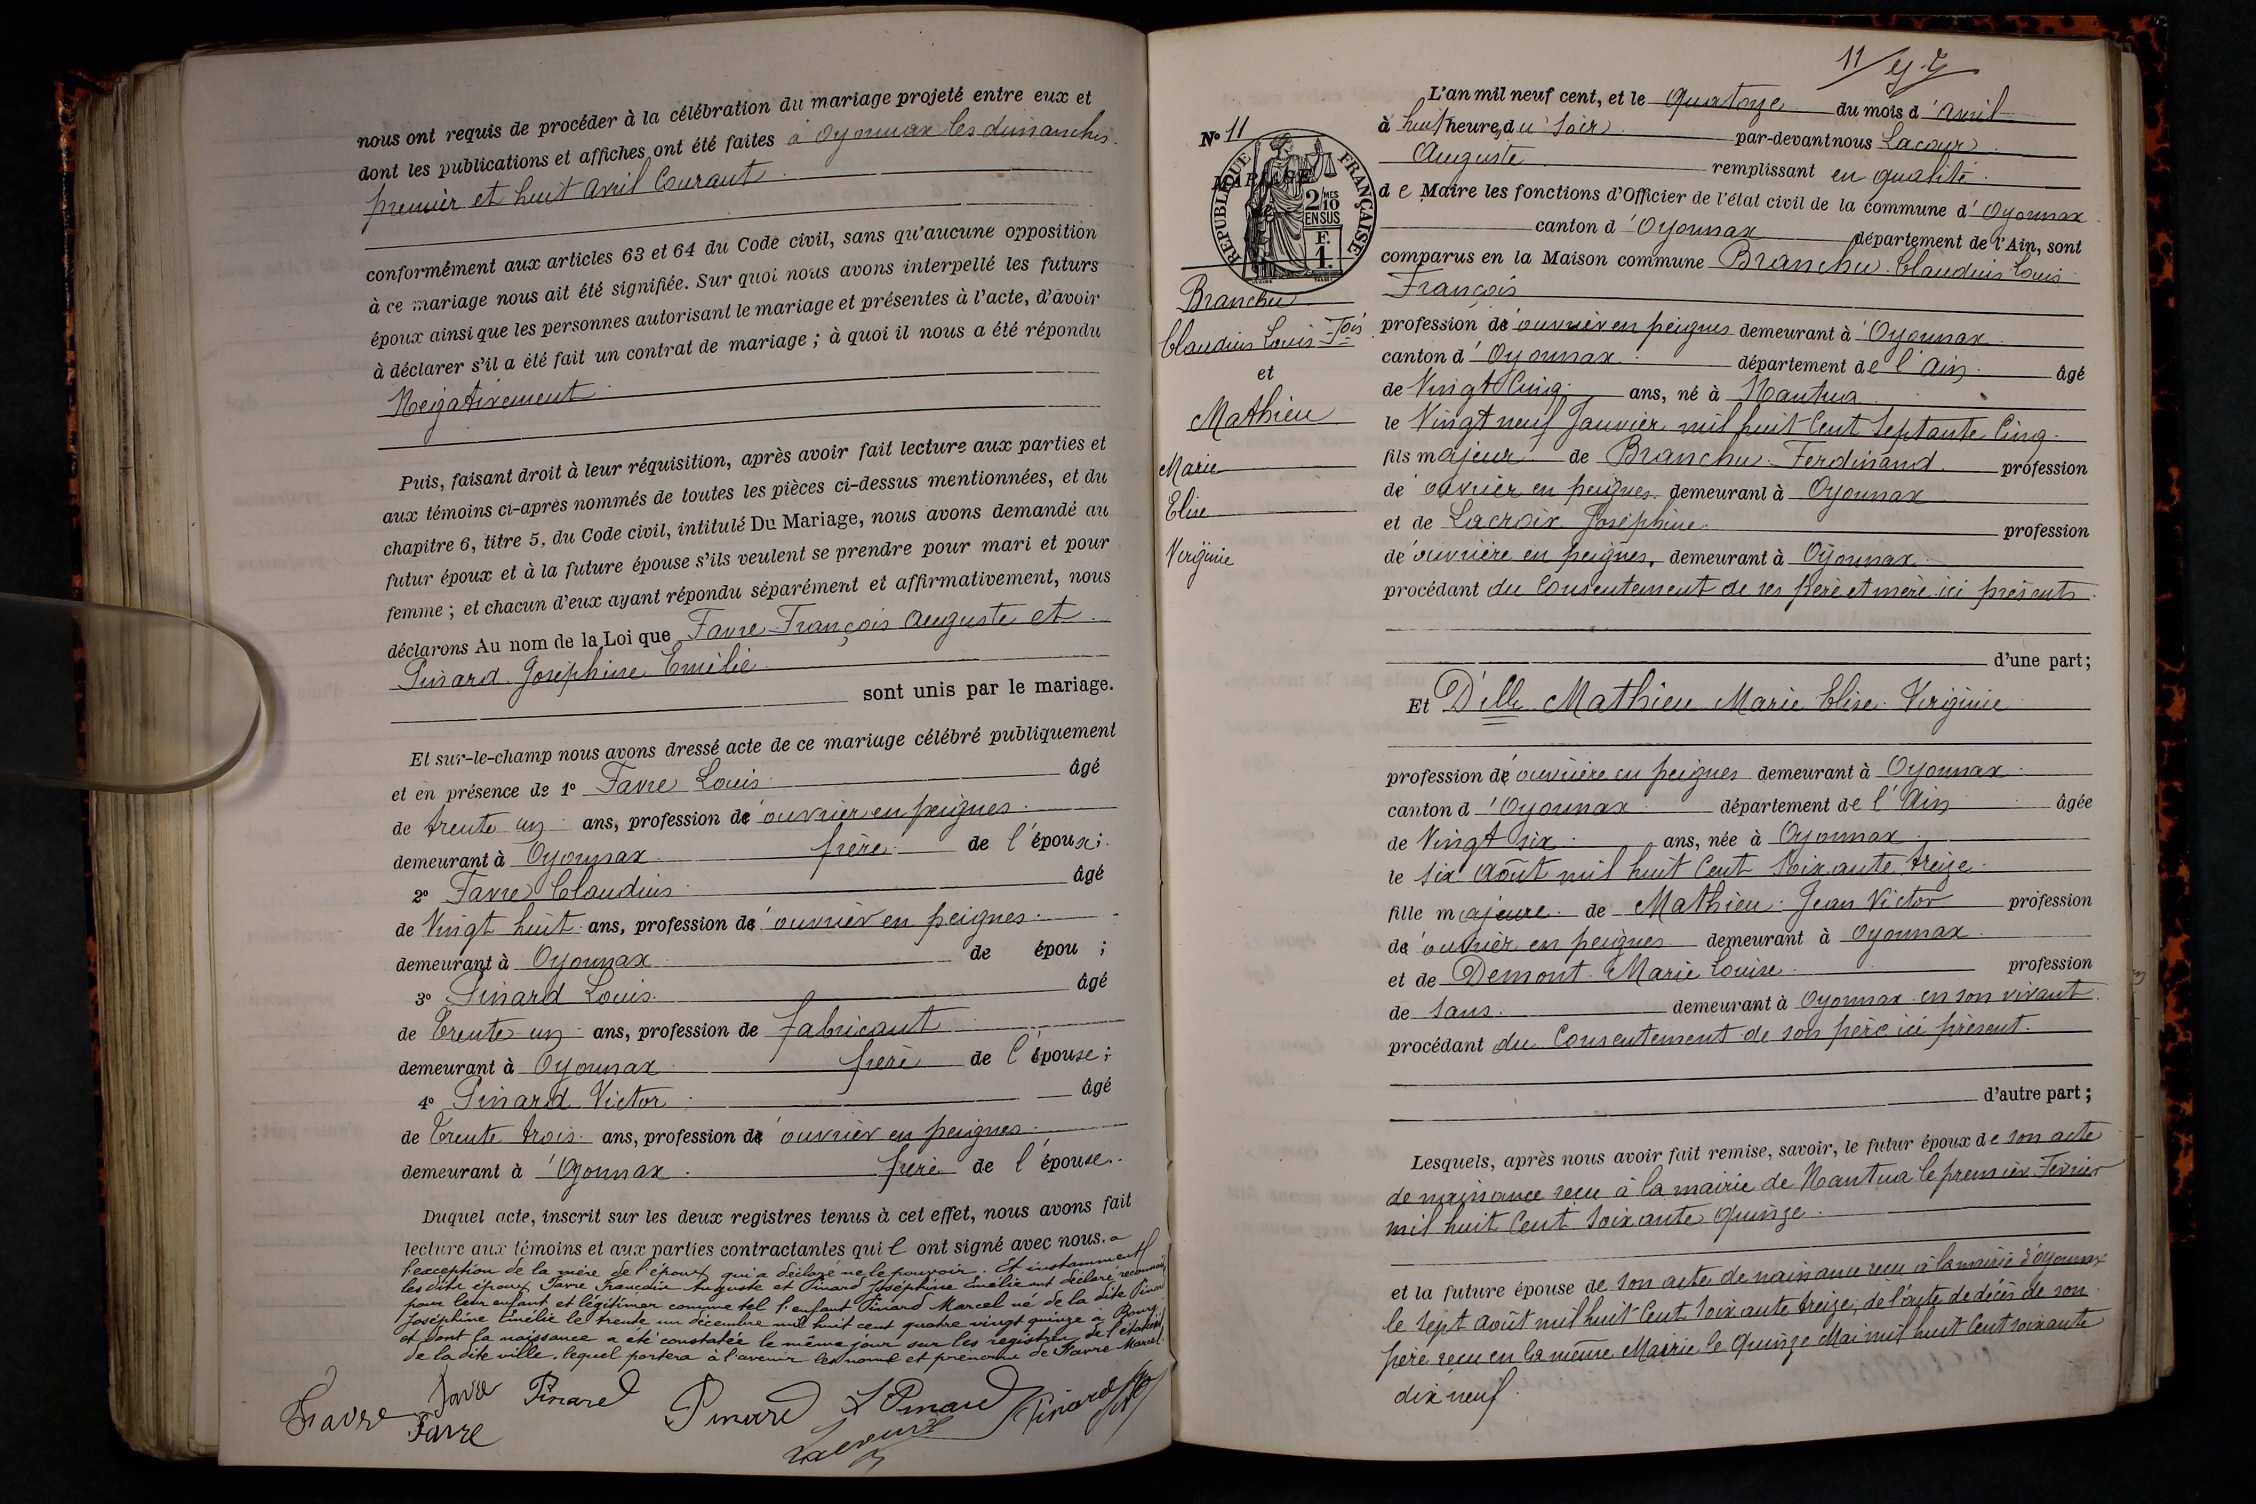 nous ont requis de procéder à la célébration du mariage projeté entre eux et
dont les publications et affiches ont été faites à Oyonnax les dimanches
premier et huit avril Courant
conformément aux articles 63 et 64 du Code civil, sans qu'aucune opposition
à ce mariage nous ait été signifiée. Sur quoi nous avons interpellé les futurs
époux ainsi que les personnes autorisant le mariage et présentes à l'acte, d'avoir
à déclarer s'il a été fait un contrat de mariage ; à quoi il nous a été répondu
Négativement
Puis, faisant droit à leur réquisition, après avoir fait lecture aux parties et
aux témoins ci-après nommés de toutes les pièces ci-dessus mentionnées, et du
chapitre 6, titre 5, du Code civil, intitulé Du Mariage, nous avons demandé au
futur époux et à la future épouse s'ils veulent se prendre pour mari et pour
femme ; et chacun d'eux ayant répondu séparément et affirmativement, nous
déclarons Au nom de la Loi que Favre François Auguste et
Pinard Joséphine Emélie
sont unis par le mariage.
Et sur-le-champ nous avons dressé acte de ce mariage célébré publiquement
et en présence de 1° Favre Louis âgé
de trente un ans, profession d'ouvrier en peignes
demeurant à Oyonnax frère de l'époux ;
2° Favre Claudius âgé
de Vingt huit ans, profession d'ouvrier en peignes
demeurant à Oyonnax de épou ;
3° Pinard Louis âgé
de Trente un ans, profession de fabricant
demeurant à Oyonnax frère de l'épouse ;
4° Pinard Victor âgé
de Trente trois ans, profession d'ouvrier en peignes
demeurant à Oyonnax frère de l'épouse.
Duquel acte, inscrit sur les deux registres tenus à cet effet, nous avons fait
lecture aux témoins et aux parties contractantes qui l ont signé avec nous. a
l'exception de la mère de l'époux qui a déclaré ne le pouvoir. Et instamment
les dits époux Favre François Auguste et Pinard Joséphine Emélie ont déclaré reconnaître
pour leur enfant et légitimer comme tel l'enfant Pinard Marcel né de la dite Pinard
Joséphine Emélie le trente un décembre mil huit cent quatre vingt quinze à Bourg
et dont la naissance a été constatée le même jour sur les registres de l'état civil
de la dite ville, lequel portera à l'avenir les noms et prénoms de Favre Marcel.
Favre Favre Pinard Pinard L Pinard Pinard
Favre Lacour
11
L'an mil neuf cent, et le quatorze du mois d'avril
N° 11
à huit heures du soir par-devant nous Lacour
Auguste remplissant en qualité
de Maire les fonctions d'Officier de l'état civil de la commune d'Oyonnax
canton d'Oyonnax département de l'Ain, sont
comparus en la Maison commune Branchu Claudius Louis
François
MARIAGE
RÉPUBLIQUE FRANÇAISE
2/10 EN SUS
F. 1.
Branchu
Claudius Louis Fois
et
Mathieu
Marie
Elise
Virginie
profession d'ouvrier en peignes demeurant à Oyonnax
canton d'Oyonnax département de l'Ain âgé
de Vingt Cinq ans, né à Nantua
le Vingt neuf Janvier mil huit Cent Septante Cinq
fils majeur de Branchu Ferdinand profession
d'ouvrier en peignes demeurant à Oyonnax
et de Lacroix Joséphine profession
d'ouvrière en peignes, demeurant à Oyonnax
procédant du Consentement de ses père et mère ici présents
d'une part ;
Et Delle Mathieu Marie Elise Virginie
profession d'ouvrière en peignes demeurant à Oyonnax
canton d'Oyonnax département de l'Ain âgée
de Vingt six ans, née à Oyonnax
le six Août mil huit Cent Soixante treize
fille majeure de Mathieu Jean Victor profession
d'ouvrier en peignes demeurant à Oyonnax
et de Demont Marie Louise profession
de sans demeurant à Oyonnax en son vivant
procédant du Consentement de son père ici présent.
d'autre part ;
Lesquels, après nous avoir fait remise, savoir, le futur époux de son acte
de naissance reçu à la mairie de Nantua le premier Février
mil huit Cent Soixante Quinze
et la future épouse de son acte de naissance reçu à la mairie d'Oyonnax
le sept Août mil huit Cent Soixante treize, de l'acte de décès de son
père reçu en la même Mairie le Quinze Mai mil huit Cent soixante
dix neuf.